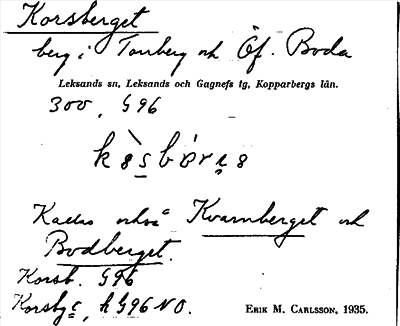 Korsberget
berg i Tansberg och Öf. Boda
Leksands sn, Leksands och Gagnefs tg, Kopparbergs län.
300, G96
Kallas också Kvarnberget och
Bodberget.
Korsb. G96
Korsbg:, h G96 NO.
ERIK M. CARLSSON, 1935.